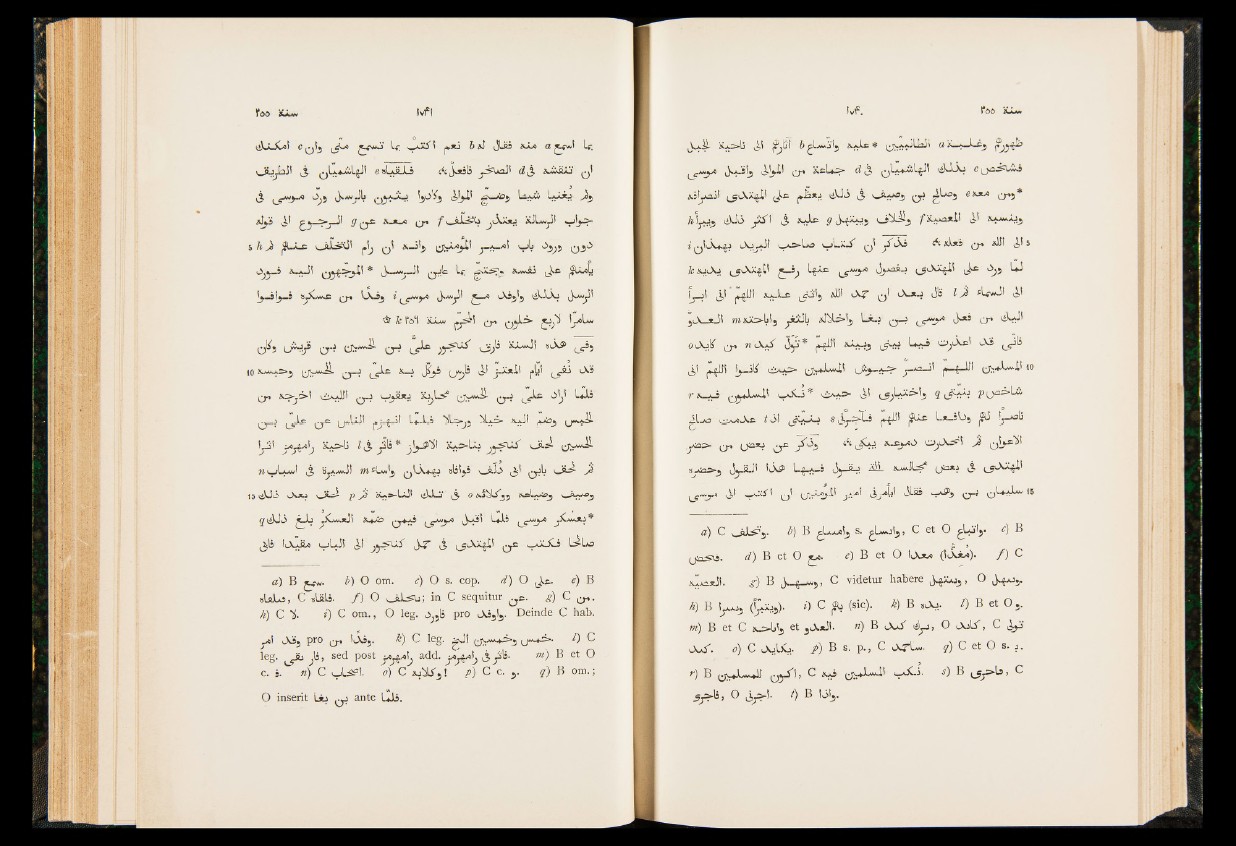 سنة ٢٥٥ ١٧٤٠
ظهورهم وغلبة a الطالبيّين * عليه واتباع b آثارهم الى ناحية الجبل
فشاخص c بذلك الهاشميّان فى d جماعة من الموالى واقبل موسى
*ومن معه e وصالح بن وصيف فى ذلك يعظّم على المهتدى انصرافه
وينسبه الى المعصية f والخلاف ويبتهل g عليه فى اكثر ذلك ويبرأ h
5 الى الله من فعله، فذُكر ان كتاب صاحب البريد بهمذان i
لمّا ورد على المهتدى بفصول موسى عنها رفع المهتدى يديه k
الى السماء ثم l قال بعد ان حمد الله واثنى عليه اللهم انى ابرأ
اليك من فعل موسى بن بغا واخلاله بالثغر واباحته m العدوّ
فانّى قد اعذرت فيما بينى وبينه اللهم *تولّ كيد n من كايد o
10 المسلمين اللهم انصر جيوش المسلمين حيث كانوا اللهم انى
شاخص p بنيّتى q واختيارى الى حيث *نُكب المسلمون فيه r
ناصرًا لهم ودافعا عنهم اللهم فآجرنى s بنيّتى اذ t عدمت صالح
الاعوان ثم انحدرت دموعه يبكى، وذُكر عن بعض من حضر
المهتدى فى بعض مجالسه يقول فيها هذا القول وحضره
15 سليمان بن وهب فقال أيأمرنى امير المؤمنين ان اكتب الى موسى
a) C وتخلف. b) B s. C et O واتباع. c) B
d) B et O مع. e) B et O f) C
g) B C videtur habere O
h) B i) C (sic). k) B يده. l) B et O و.
m) B et C et العدو. n) B O C
o) C p) B s. p., C q) C et O s. ب.
r) B C s) B C
O اجرنى. t) B واذا.
سنة ٢٥٥ ١٧٤١
بما اسمع a منه فقال له b نعم اكتب بما تسمع منّى وان c امكنك
ان تنقشه فى d الصخر فافعل، فلقياه e الهاشميّان فى الطريق
ولم يُغنيا شيئا وضجّ الموالى وكادوا يثبون بالرسل وردّ موسى فى
جواب الرسالة يعتذر بتخلّف f من معه عن g الرجوع الى قوله
5 دون ورود باب امير المؤمنين وانه ان رام التخلّف عنهم لم h
يأمنهم على نفسه ويحتجّ بما عاين الرسل *الموجّهون اليه فورد
الرسل بذلك واوفد مع الرسل موسى i وفدا من عسكره فوافوا
سامرّا لاربع خلون من المحرّم سنة ٢٥٦ k
وفى هذه السنة فارق كنجور علىّ بن الحسين بن قريش وكان
10 قد نفى ايّام المعتزّ الى فارس فوكّل به علىّ بن الحسين وحبسه
فلمّا اراد علىّ بن الحسين محاربة يعقوب بن الليث اخرجه من
الحبس وضم اليه خيلا ورجالا فلمّا انهزم الناس عن علىّ بن
الحسين لحق كنجور بناحية الاهواز *فأثّر فى l ناحية رامهرمز اثرا
ثم لحق بابن ابى دُلَف فوافاه بهمذان واساء m السيرة فى اسباب n
15 وصيف وضياعه ووكلائه o فى تلك الناحية ثم p لحق بعد ذلك
*بعسكر موسى فلمّا اقبل موسى فيمن ضمّه العسكر بلغ ذلك q
صالحا فكتب عن المهتدى فى حمل كنجور الى الباب مقيّدا فابى
a) B سمع. b) O om. c) O s. cop. d) O على. e) B
C فلقاه. f) O in C sequitur عن. g) C من.
h) C لا. i) C om., O leg. قاورد pro واوفد. Deinde C hab.
امر وقد pro وفدا من. k) C leg. خمس وخمسين الخ. l) C
leg. فار نفى, sed post رامهرمز add. فأثر فى رامهرمز. m) B et O
c. ف. n) C اصحاب. o) C p) C c. و. q) B om.;
O inserit بن بغا ante فلمّا.